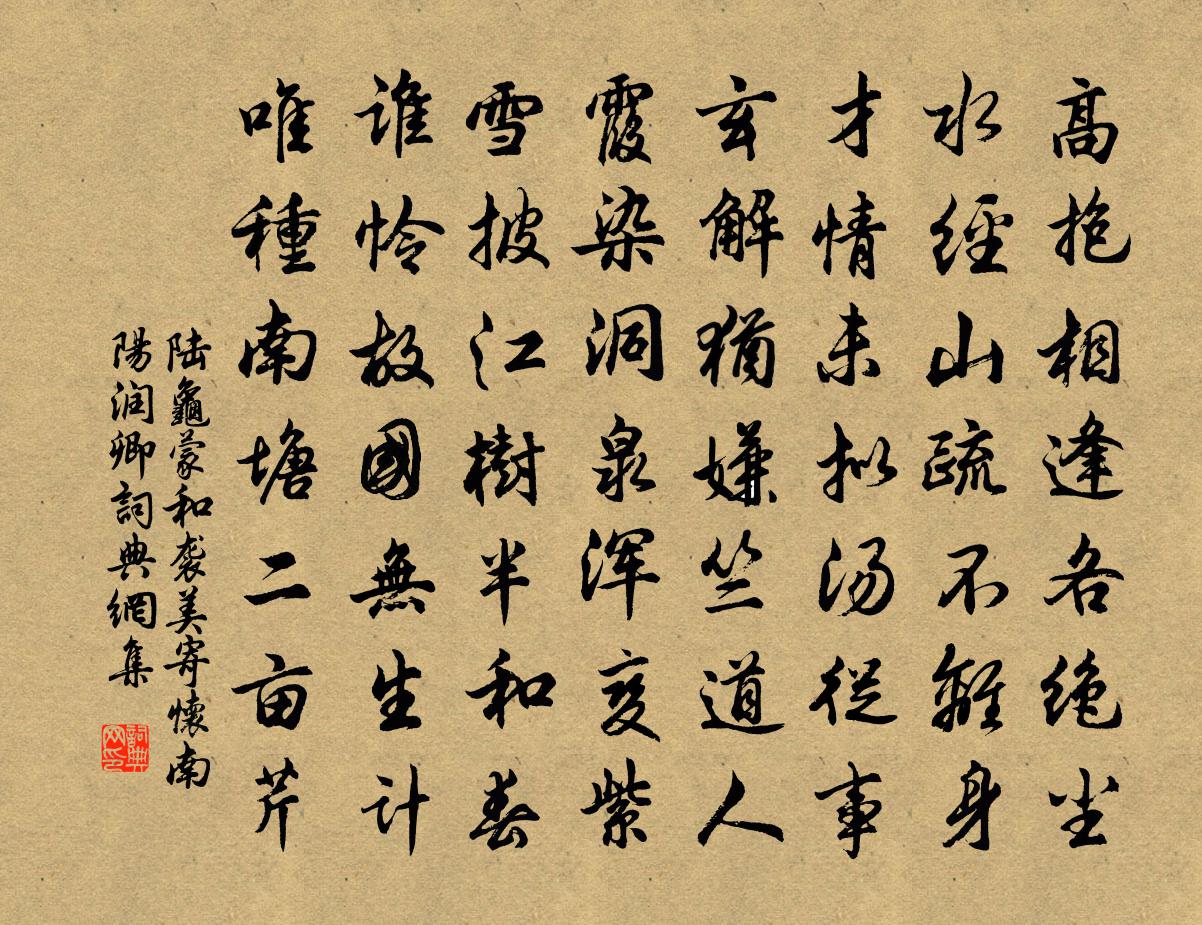 高抱相逢各绝尘
水經山疏不離身
才情未拟湯從事
玄解猶嫌竺道人
霞染洞泉渾变紫
雪披江樹半和春
谁怜故國無生计
唯種南塘二亩芹
陆龜蒙和袭美寄懷南
陽润卿詞典網集
詞典网印